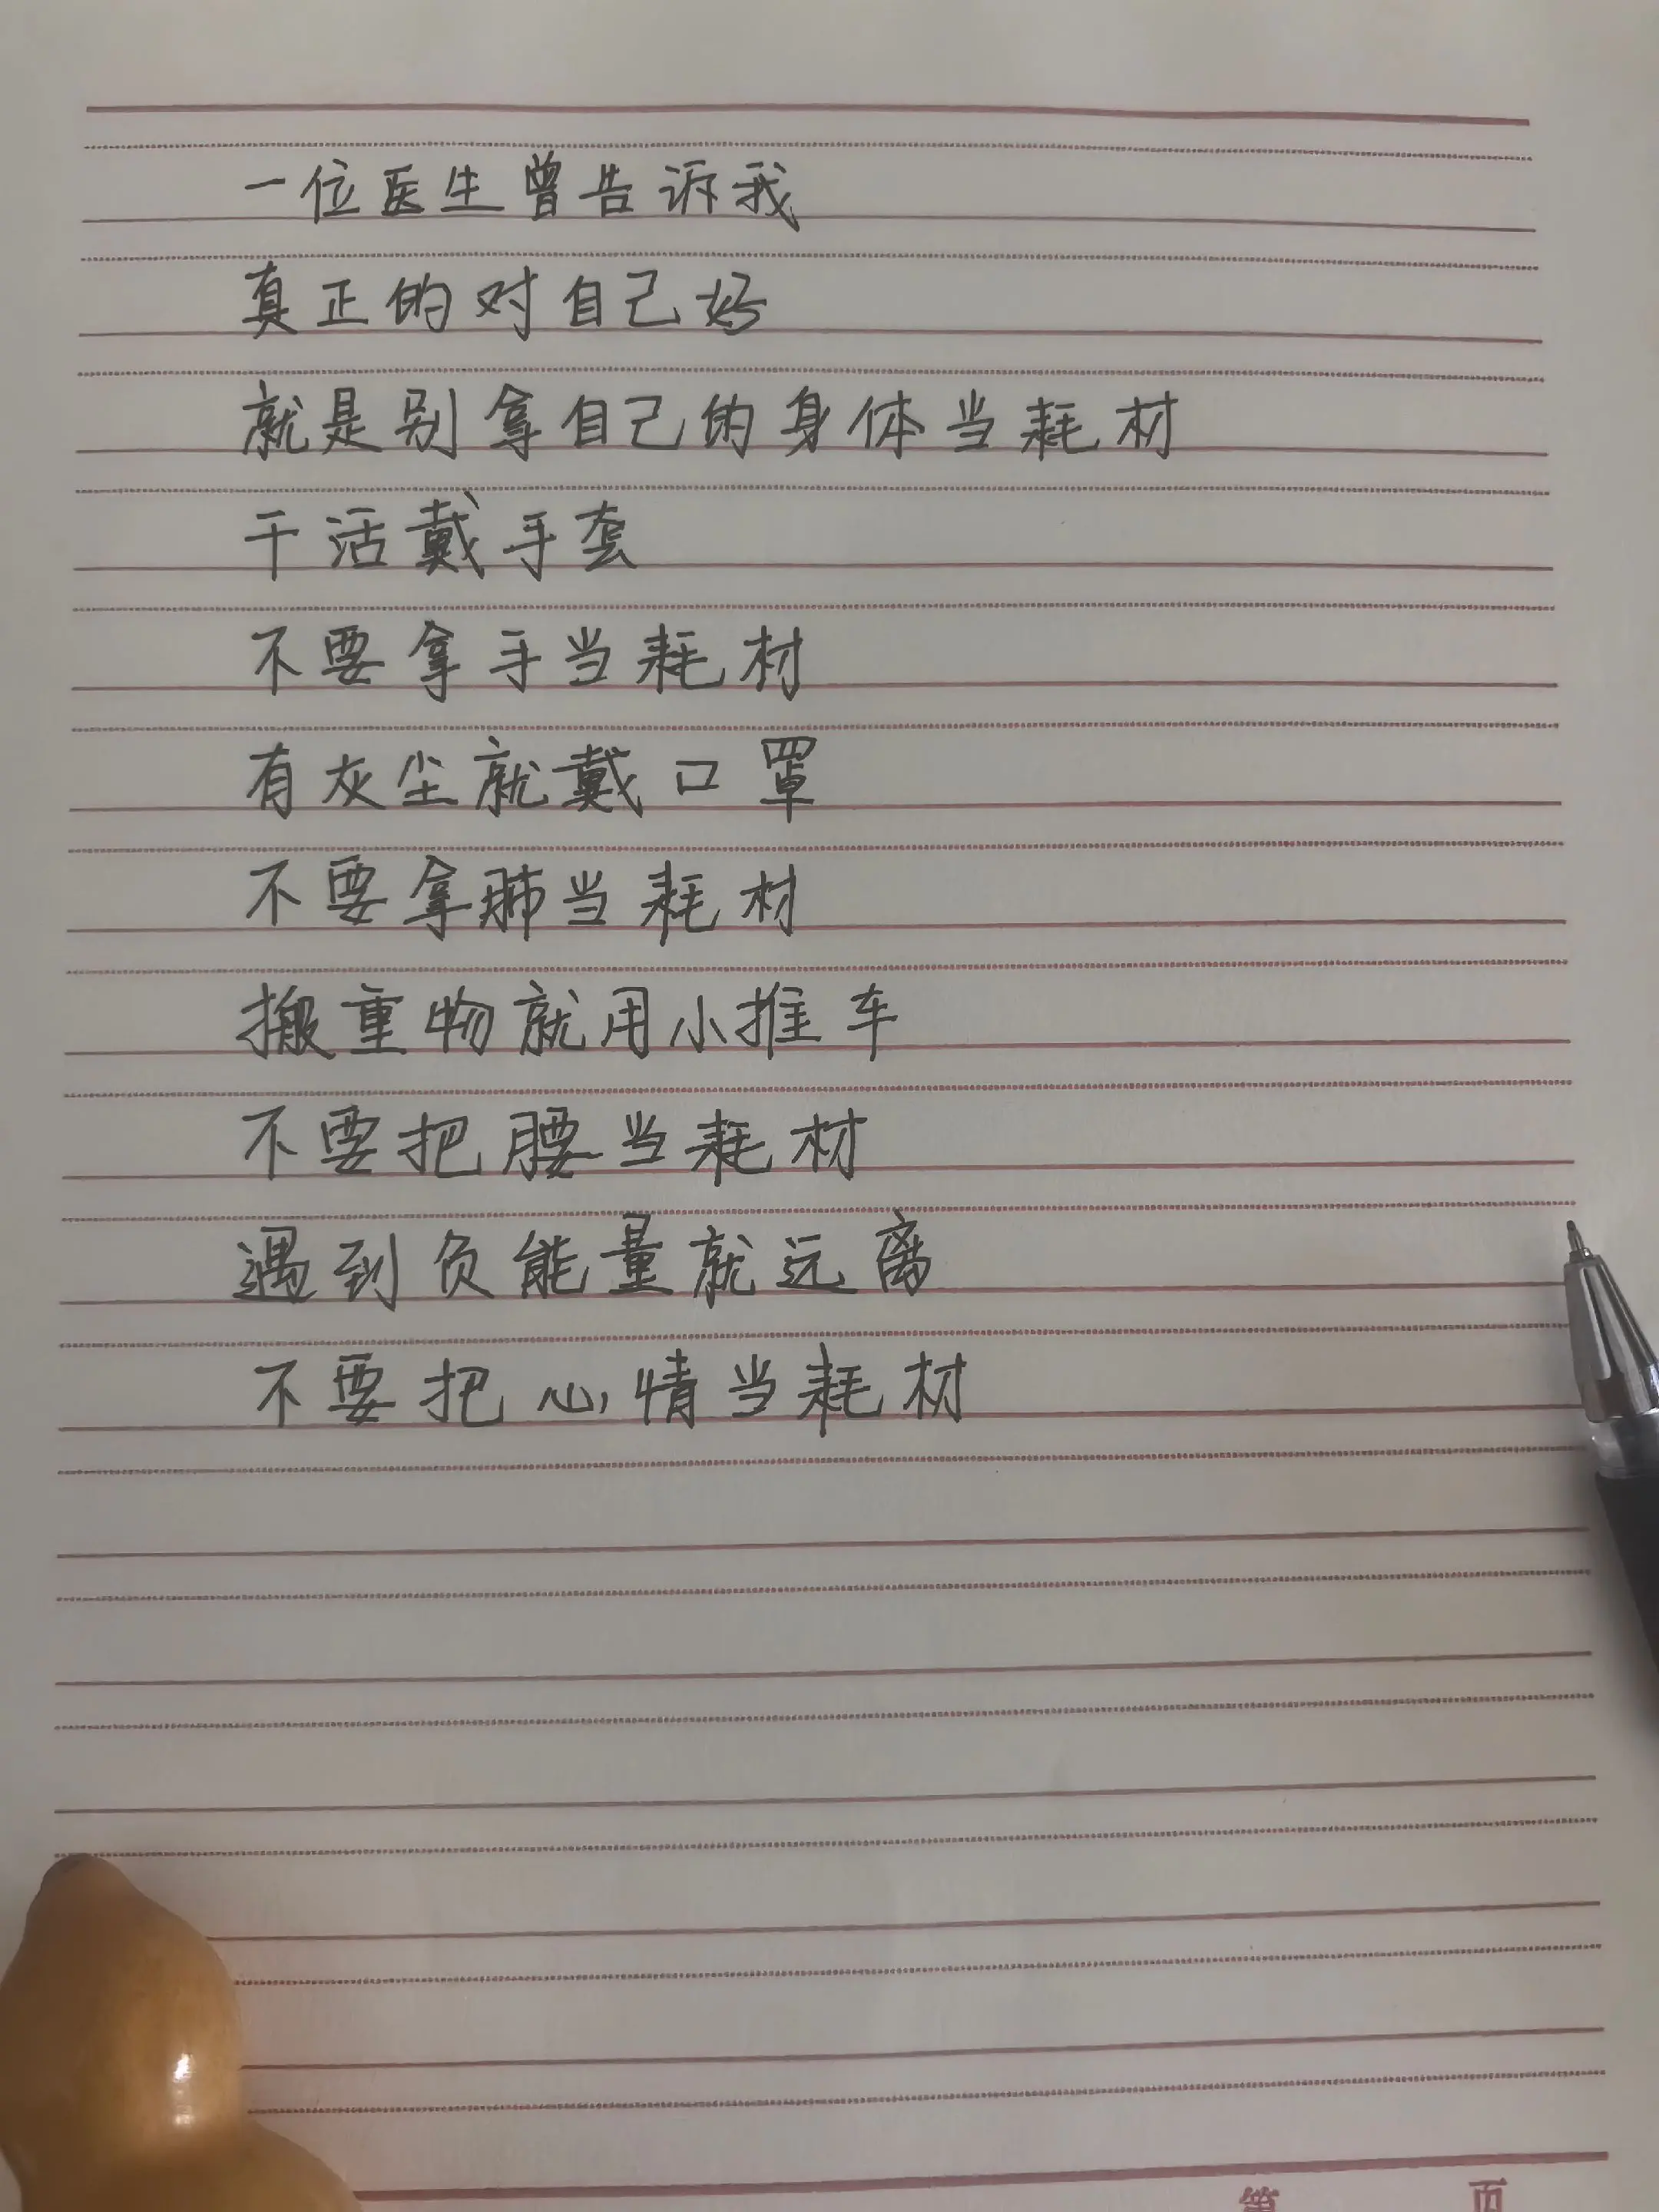 一位医生曾告诉我
真正的对自己好
就是别拿自己的身体当耗材
干活戴手套
不要拿手当耗材
有灰尘就戴口罩
不要拿肺当耗材
搬重物就用小推车
不要把腰当耗材
遇到负能量就远离
不要把心情当耗材
第 页